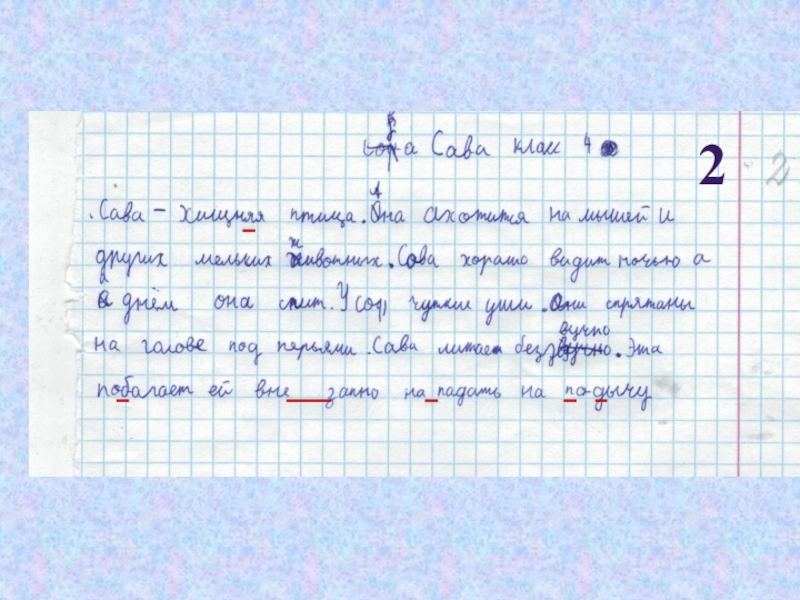 а Сава клас 4 2
2
Сава – хищняя птица. Она ахотится на мышей и
других мелких животных. Сова хорашо видит ночью а
днём она спит. У сов чуткие уши. Они спрятаны
на галове под перьями. Сава литает беззвучно. Эта
побагает ей вне запно на падать на подычу